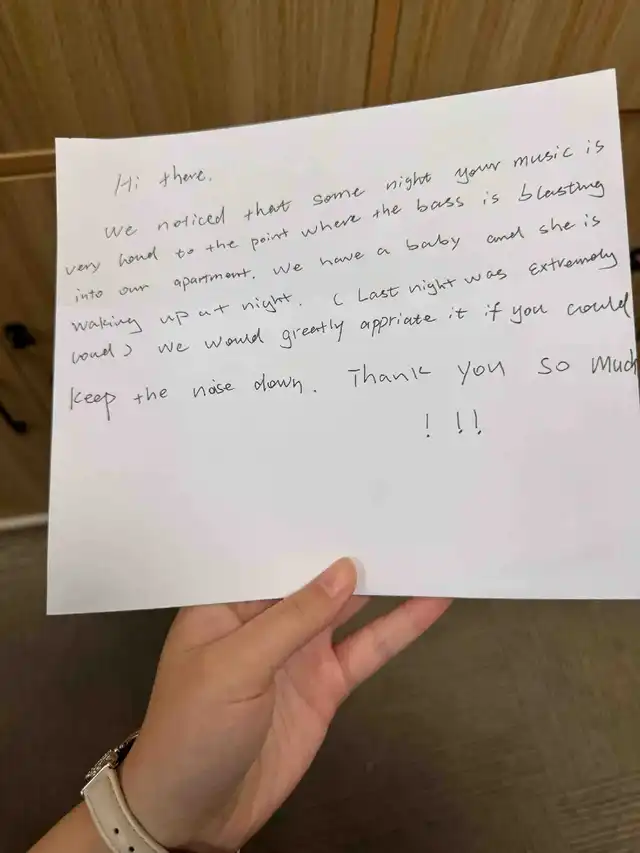 Hi there.
We noticed that some night your music is
very loud to the point where the bass is blasting
into our apartment. We have a baby and she is
waking up at night. ( Last night was extremely
loud ) We would greatly appriate it if you could
keep the noise down. Thank you so much
! !!